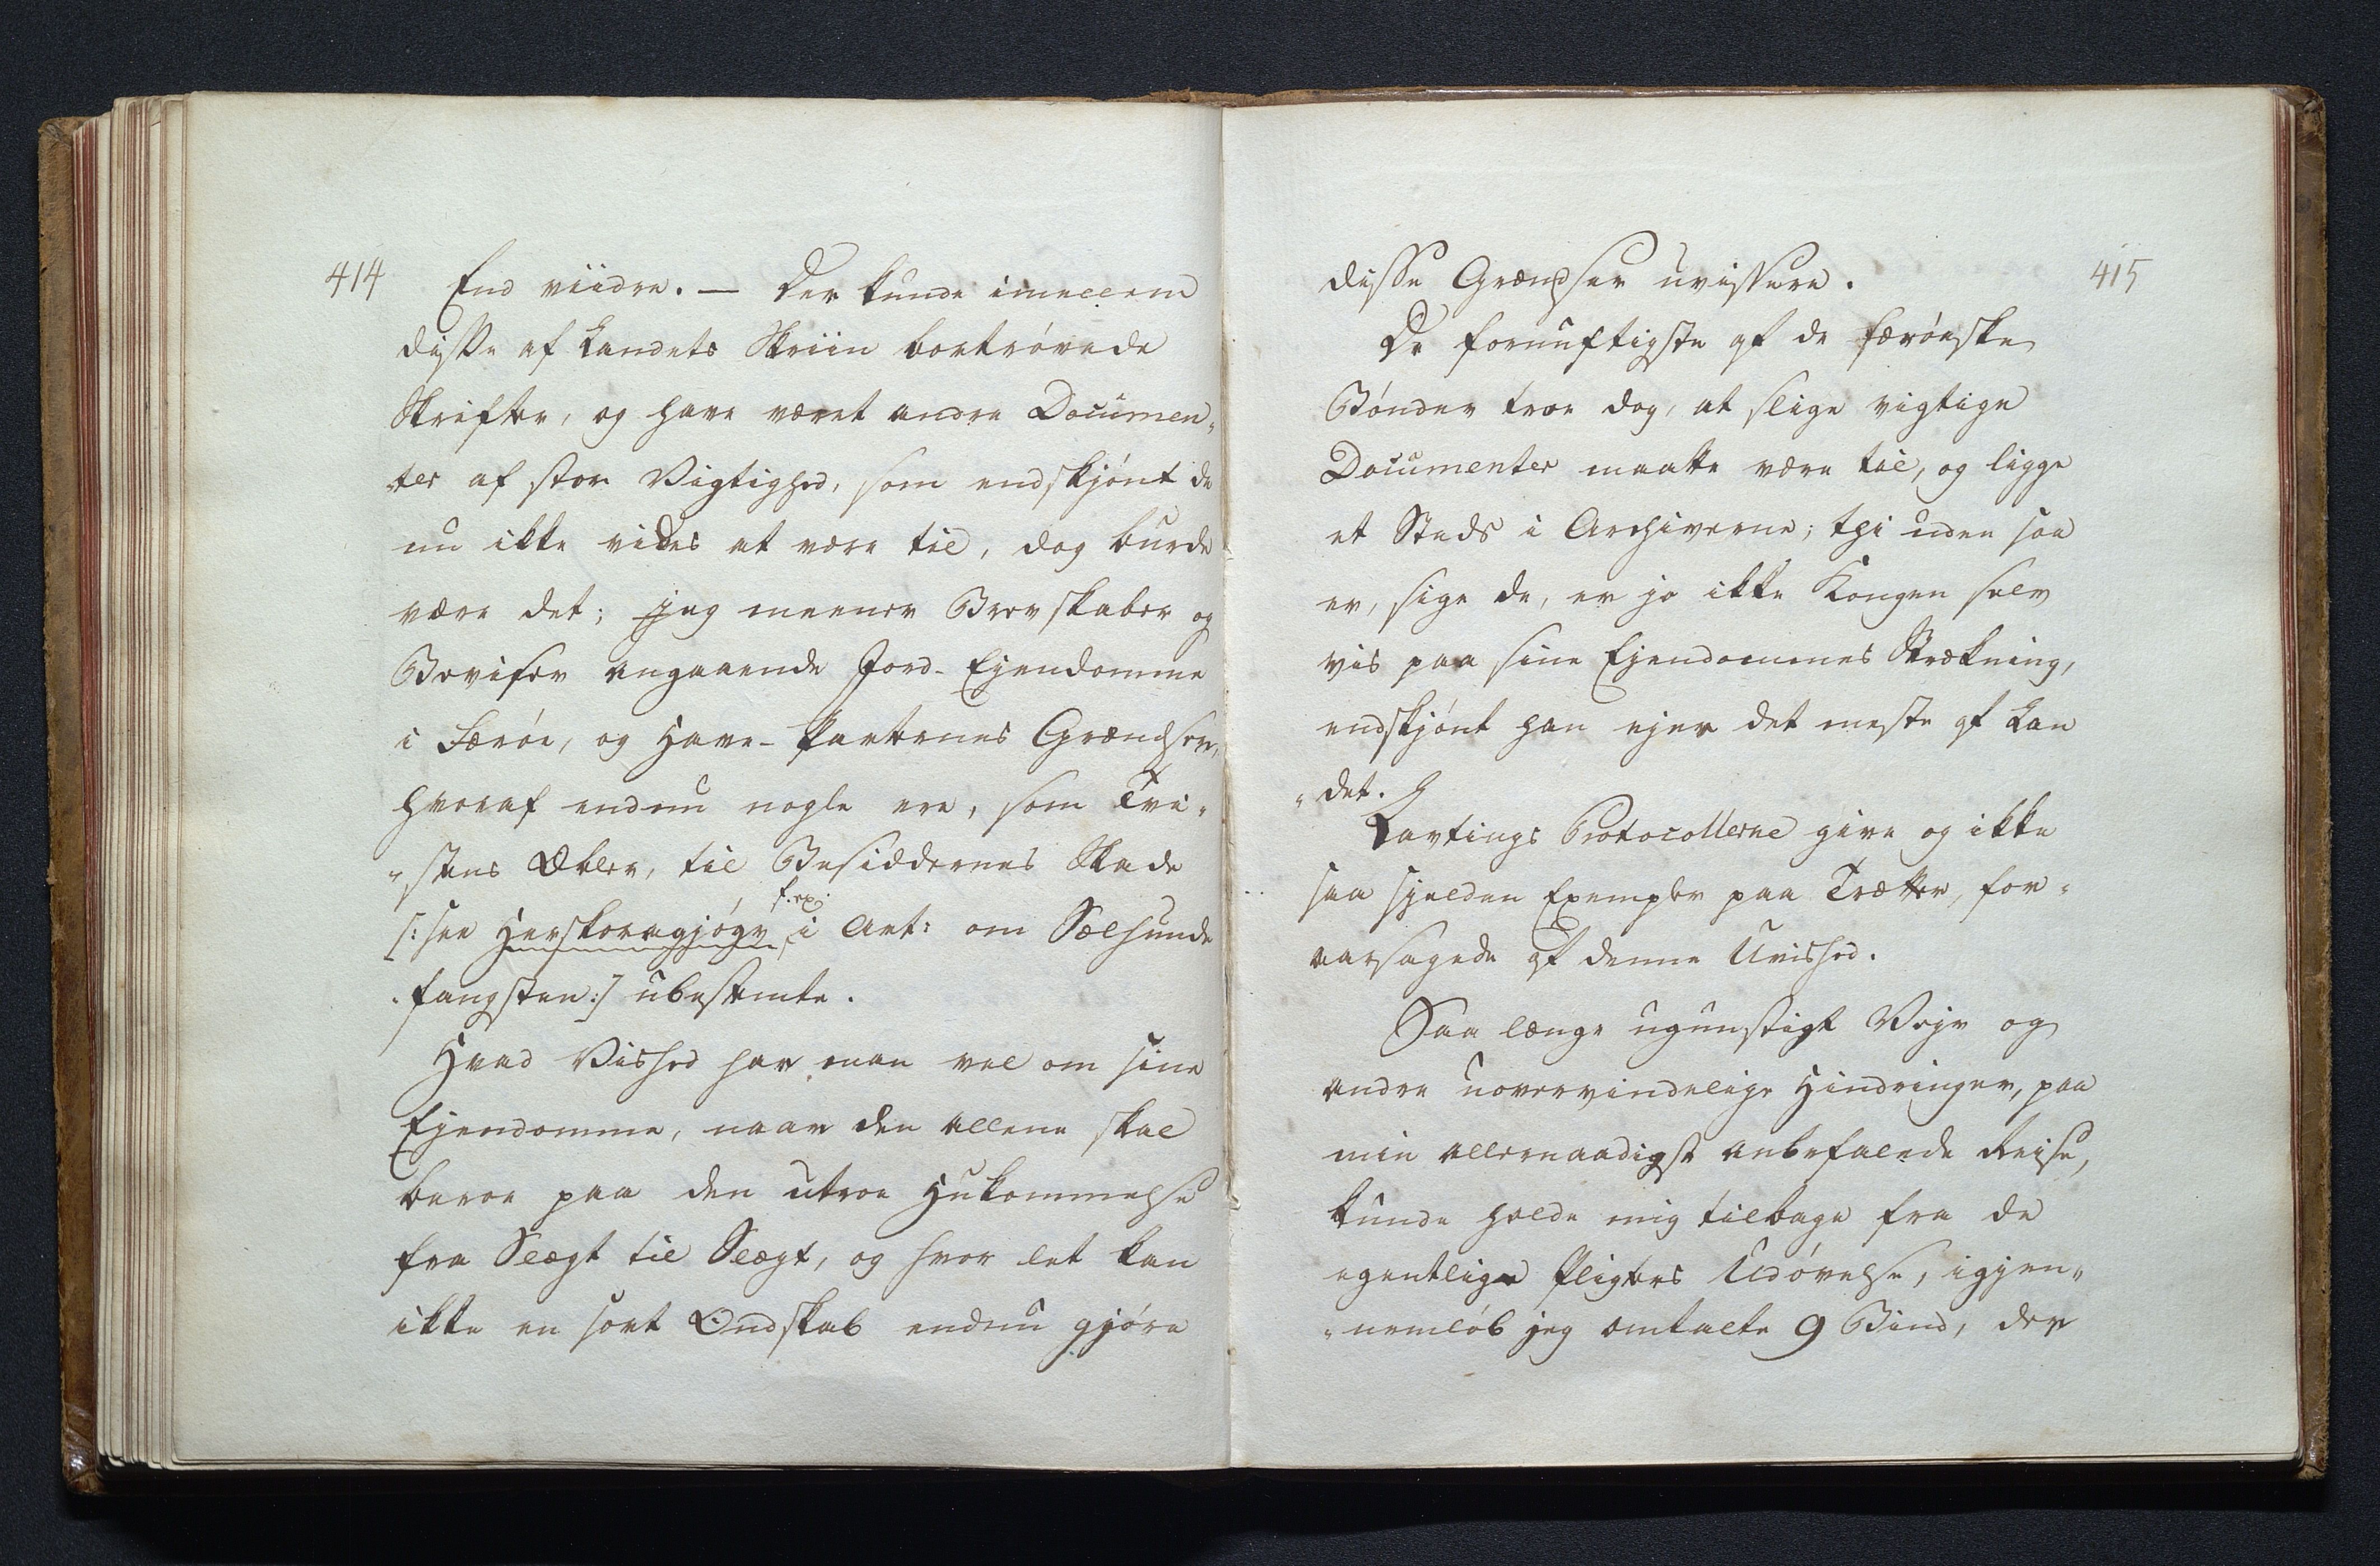 414
End viidre. — Der kunde imellem
disse af Landets Skriin bortrövede
Skrifter, og have været andre Documen„
ter af stor Vigtighed, som endskjönt de
nu ikke vides at være til, dog burde
være det; jeg meener Brevskaber og
Beviser angaaende Jord-Ejendomme
i Færöe, og Have-Parternes Grændser,
hvoraf endnu nogle ere, som Tvi„
„stens Æbler, til Besiddernes Skade
[: see Herskoragjógv f. ex: i Art: om Sælhunde
„fangsten :] ubestemte.
Hvad Vished har man vel om sine
Ejendomme, naar den allene skal
beroe paa den utroe Hukommelse
fra Slægt til Slægt, og hvor let kan
ikke en sort Ondskab endnu gjöre
415
disse Grændser uvissere.
De fornuftigste af de færöeske
Bönder troe dog, at slige vigtige
Documenter maatte være til, og ligge
et Steds i Archiverne; thi uden saa
er, sige de, er jo ikke Kongen selv
vis paa sine Ejendommes Strækning,
endskjönt han ejer det meste af Lan
„det.
Lavtings Protocollerne give og ikke
saa sjelden Exempler paa Trætter, for„
aarsagede af denne Uvished.
Saa længe ugunstigt Vejr og
andre uovervindelige Hindringer, paa
min allernaadigst anbefalede Reise,
kunde holde mig tilbage fra de
egentlige Pligters Udövelse, igjen„
„nemlöb jeg omtalte 9 Bind, der